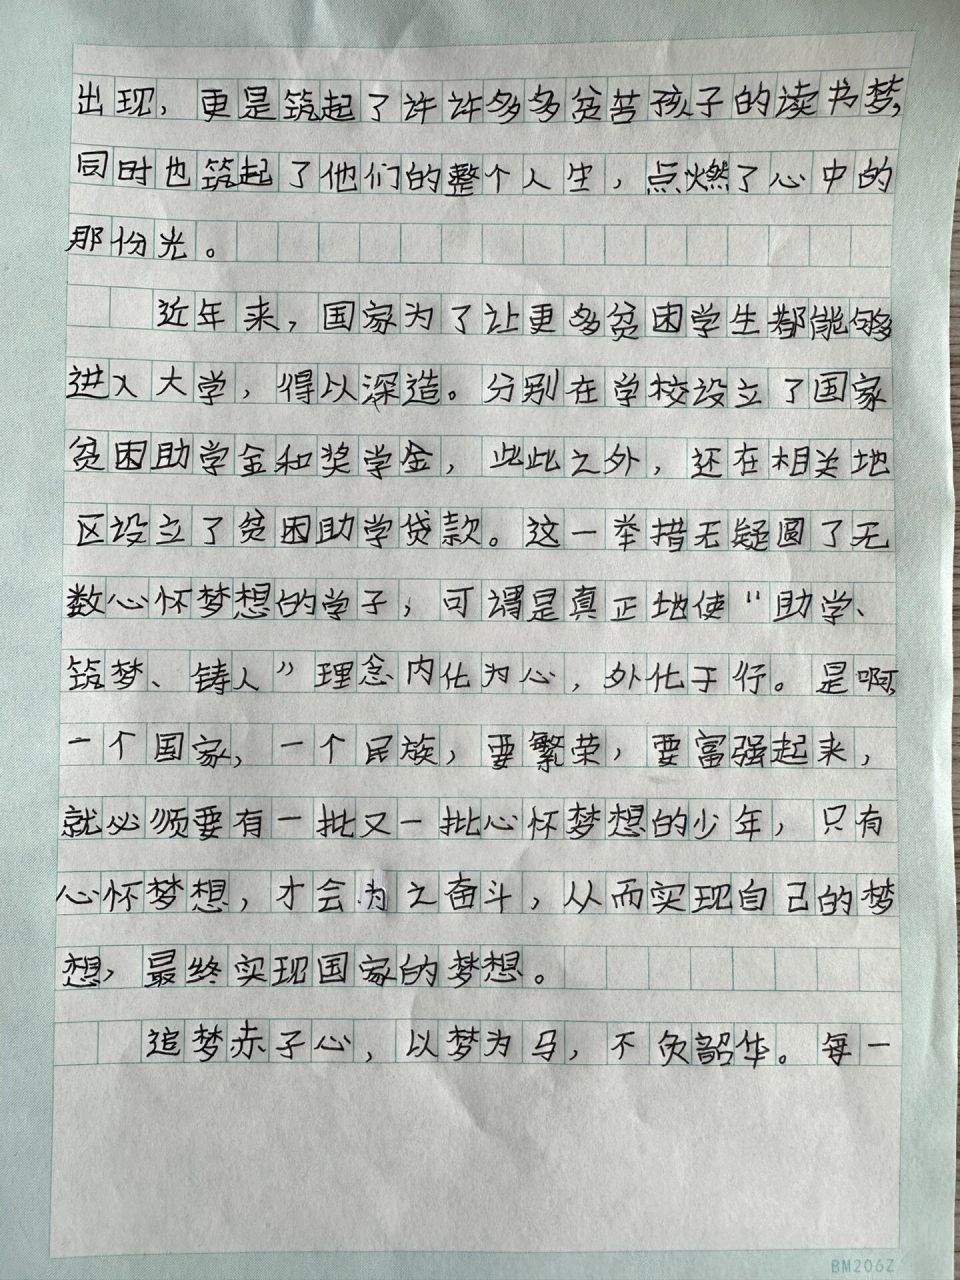 出现，更是筑起了许许多多贫苦孩子的读书梦，
同时也筑起了他们的整个人生，点燃了心中的
那份光。
近年来，国家为了让更多贫困学生都能够
进入大学，得以深造。分别在学校设立了国家
贫困助学金和奖学金，此此之外，还在相关地
区设立了贫困助学贷款。这一举措无疑圆了无
数心怀梦想的学子，可谓是真正地使“助学、
筑梦、铸人”理念内化为心，外化于行。是啊，
一个国家，一个民族，要繁荣，要富强起来，
就必须要有一批又一批心怀梦想的少年，只有
心怀梦想，才会为之奋斗，从而实现自己的梦
想，最终实现国家的梦想。
追梦赤子心，以梦为马，不负韶华。每一
BM206Z